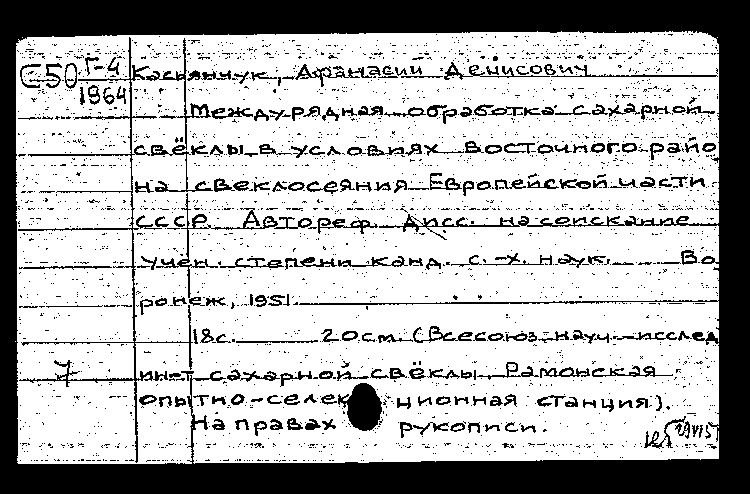 С50 Г-4 Касьянчук, Афанасий Денисович
1964
Междурядная обработка сахарной
свёклы в условиях Восточного райо
на свеклосеяния Европейской части
СССР. Автореф. дисс. на соискание
учен. степени канд. с.-х. наук. Во
ронеж, 1951.
18с. 20см. (Всесоюз. науч.-исслед
7 ин-т сахарной свёклы. Рамонская
опытно-селекционная станция).
На правах рукописи.